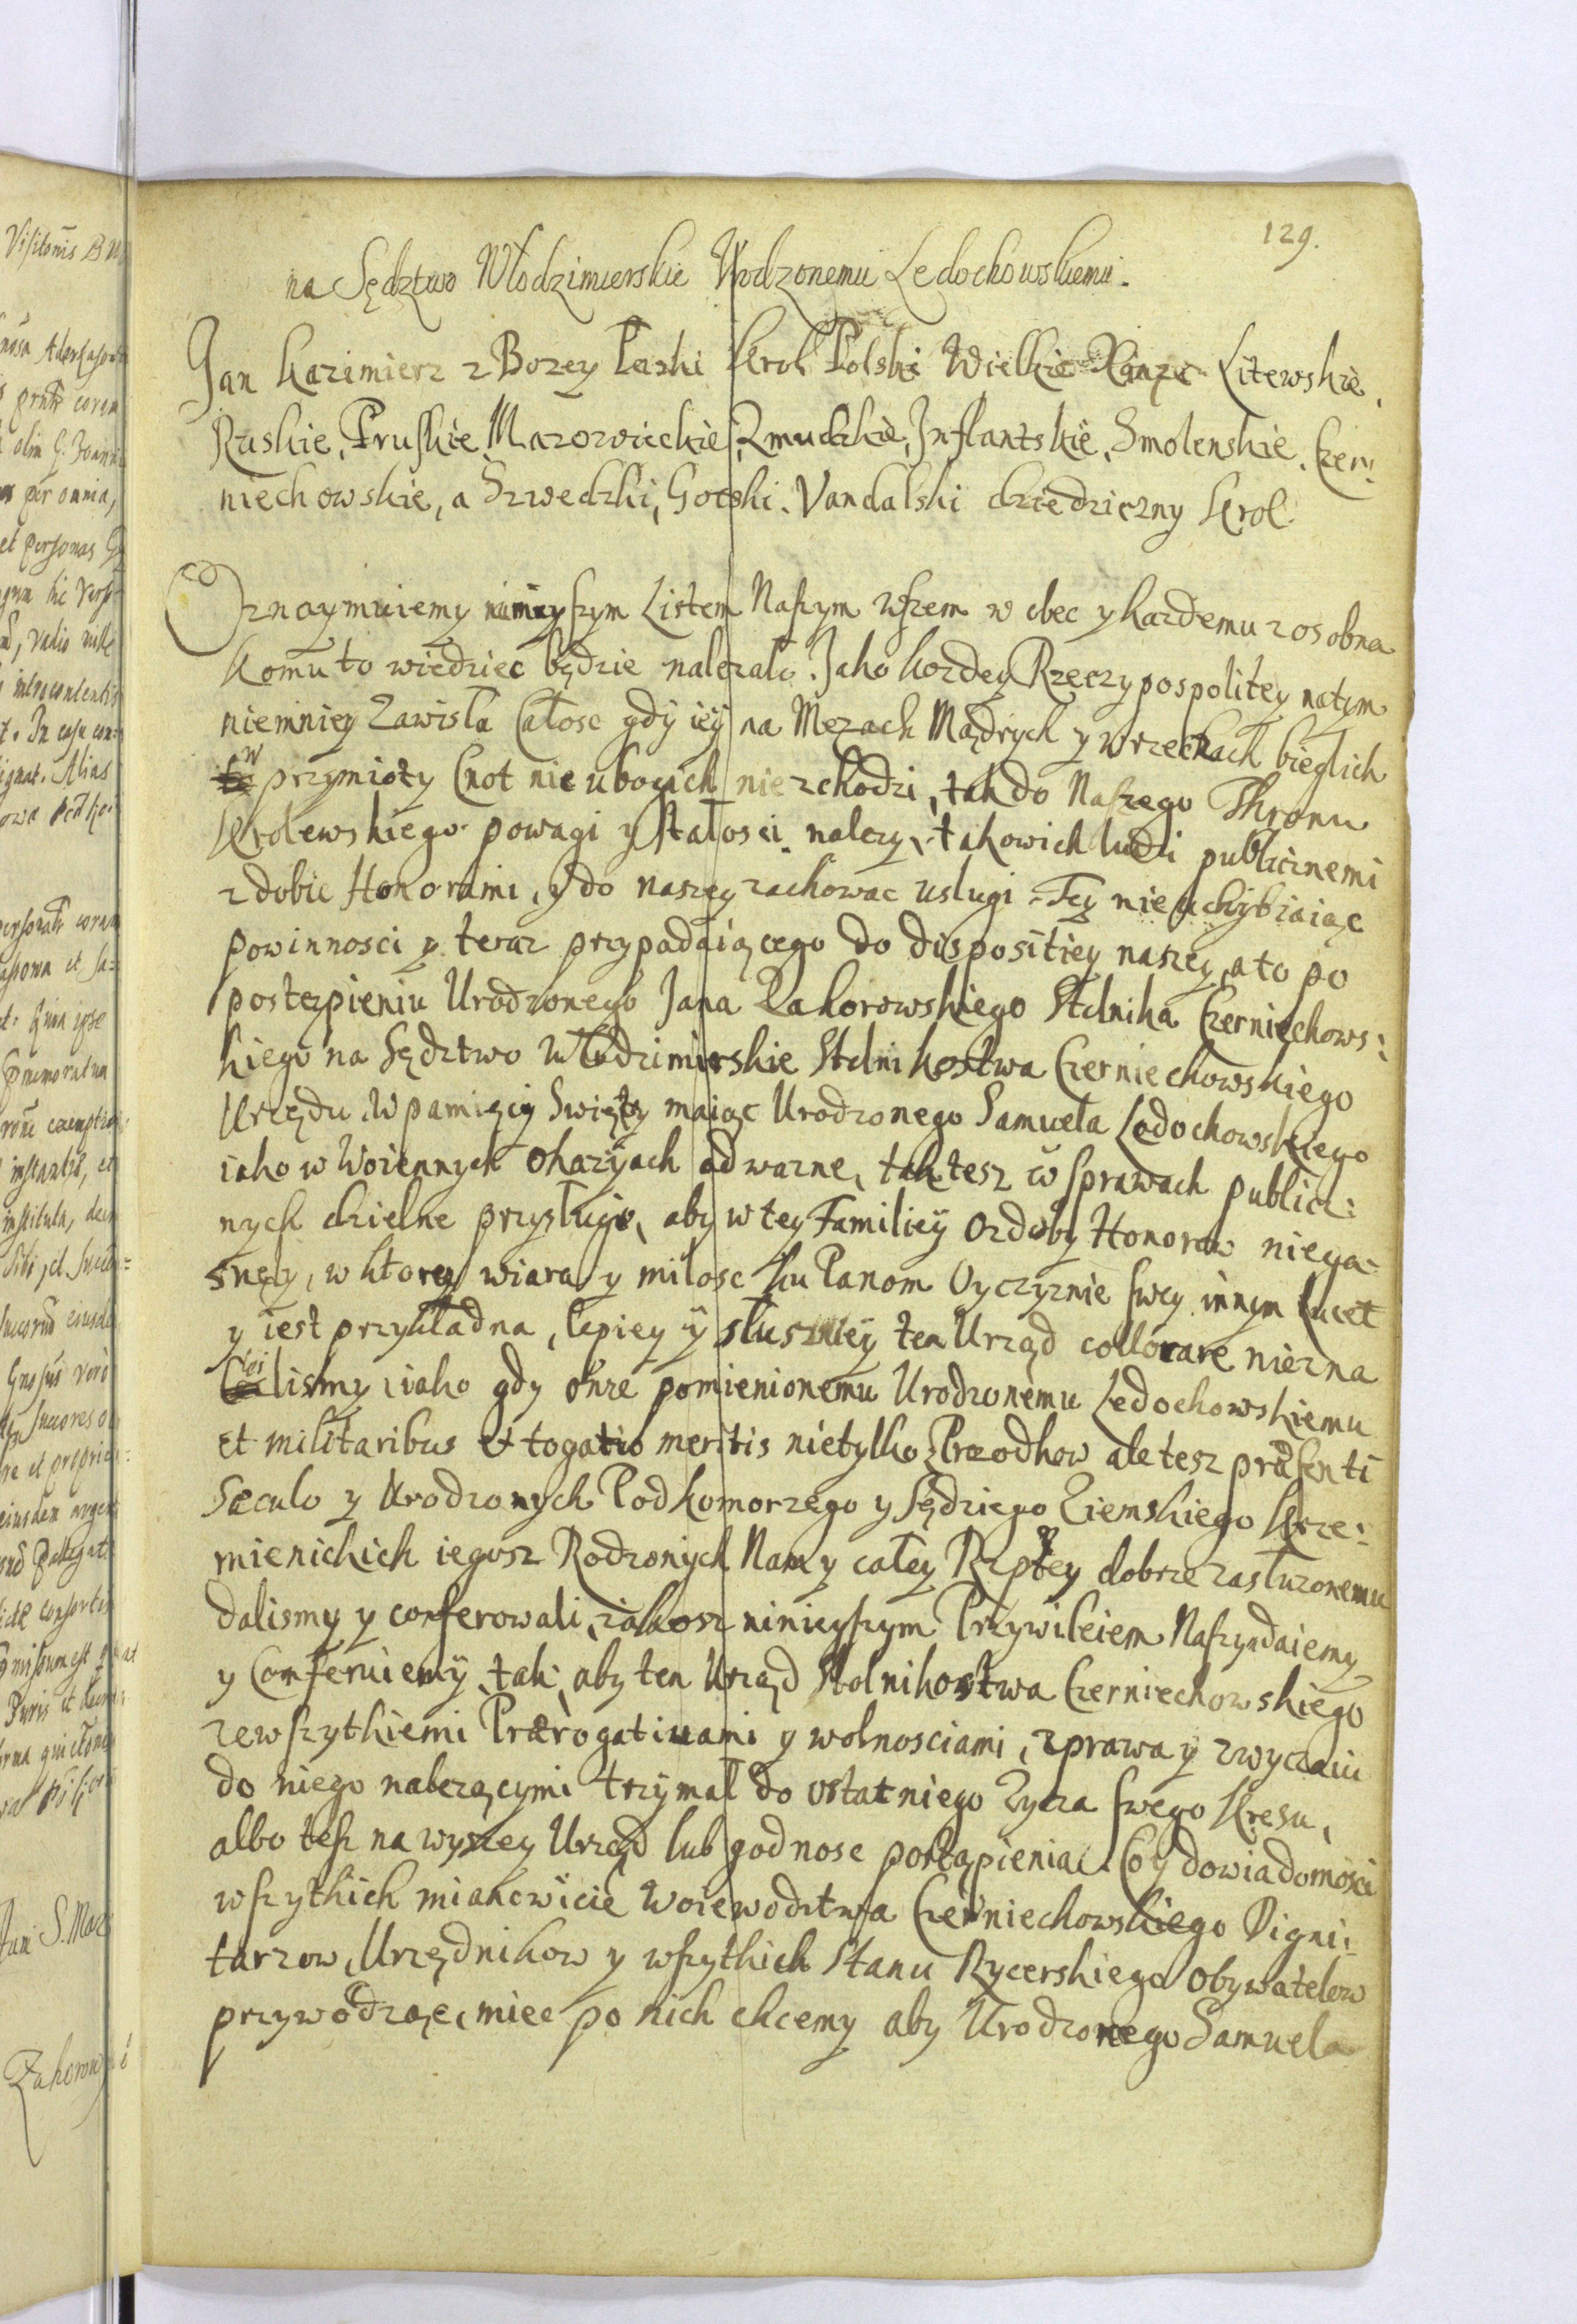 129.
na Sędztwo Włodzimierskie Urodzonemu Ledochowskiemu.
Jan Kazimierz z Bozey Łaski Krol Polski Wielkie Xiąze Litewskie,
Ruskie, Pruskie, Mazowieckie, Zmudzkie, Inflantskie, Smolenskie, Czer:
niechowskie, a Szwedzki, Gotski, Vandalski dziedziczny Krol.
Oznaymuiemy ninieyszym Listem Naszym wszem w obec y kazdemu zosobna
Komu to wiedziec będzie nalezało. Jako kozdey Rzeczypospolitey natym
niemniey zawisła Całosc gdy iey na Męzach Mądrych y w rzeczach bieglich
w przymioty Cnot nie ubogich nie zchodzi, tak do Naszego Thronu
Krolewskiego powagi y stałosci nalezy, takowich ludzi publicznemi
zdobic Honorami, y do naszey zachowac uslugi. Tey nie uchybiaiąc
powinnosci y teraz przypadaiącego do dispositiey naszey, a to po
postęmpieniu Urodzonego Jana Zahorowskiego Stolnika Czerniechows:
kiego na Sędztwo Włodzimirskie Stolnikostwa Czerniechowskiego
Urzędu, W pamięcy Swięty maiąc Urodzonego Samuela Ledochowskiego
iako w Woiennych okazyach odwazne, tak tesz w sprawach publicz:
nych dzielne przysługi, aby w tey Familiey ozdoby Honorow niega-
sneły, w ktorey wiara y miłosc ku Panom Oyczyznie swey innym lucet
y iest przykładna, lepiey y słuszniey ten Urząd collocare niezna
lezlismy, iako gdy onze pomienionemu Urodzonemu Ledochowskiemu
et militaribus et togatis meritis nietylko Przodkow ale tesz præsenti
Sæculo y Urodzonych Podkomorzego y Sędziego Ziemskiego Krze:
mienickich iegosz Rodzonych Nam y całey Rzptey dobrze zasłuzonemu
dalismy y conferowali, iakosz ninieyszym Przywileiem Naszym daiemy
y Conferuiemy, tak aby ten Urząd Stolnikostwa Czerniechowskiego
zewszytkiemi Prærogatiuami y wolnosciami, z prawa y zwyczaiu
do niego nalezącymi trzymal do ostatniego Zycia swego Kresu,
albo tesz na wyszey Urząd lub godnosc postąpienia. Co y dowiadomosci
wszytkich mianowicie Woiewodztwa Czerniechowskiego Digni:
tarzow, Urzędnikow y wszytkich Stanu Rycerskiego Obywatelow
przywodząc, miec po nich chcemy aby Urodzonego Samuela